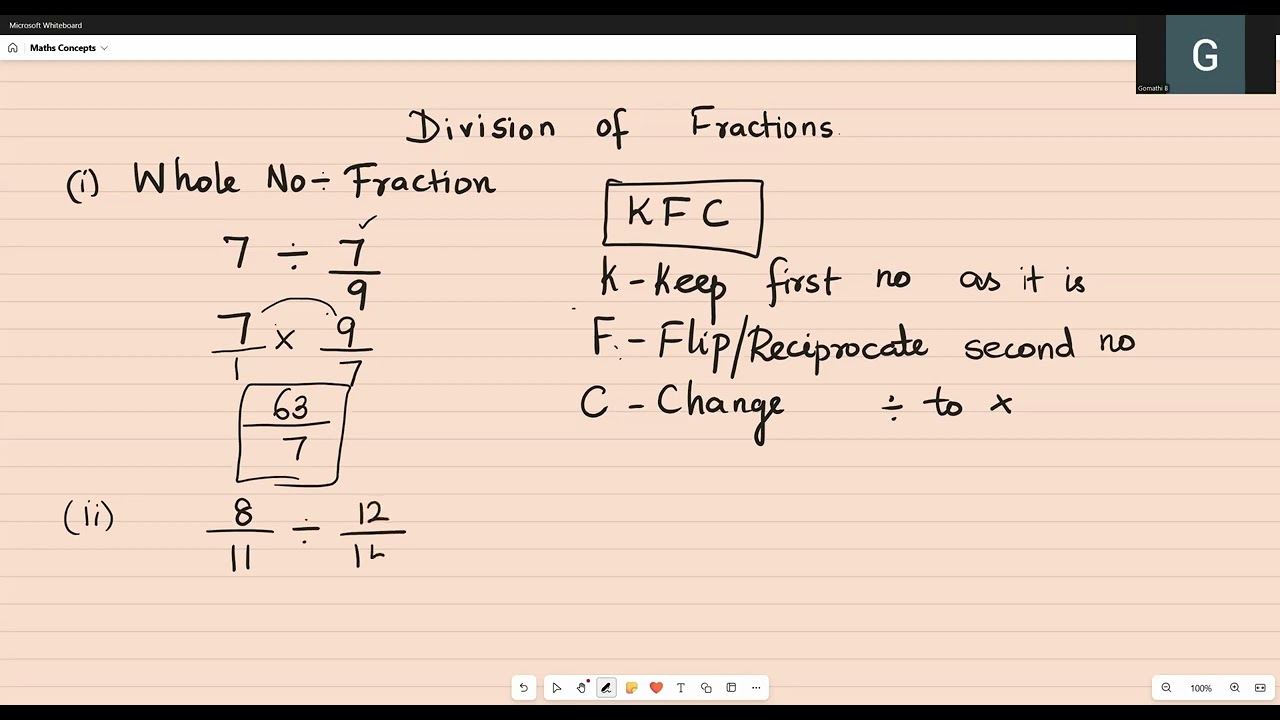 Microsoft Whiteboard
Maths Concepts
G
Gomathi B
Division of Fractions
(i) Whole No ÷ Fraction
7 ÷ 7/9
7/1 x 9/7
63/7
KFC
K - Keep first no as it is
F - Flip/Reciprocate second no
C - Change ÷ to x
(ii) 8/11 ÷ 12/
T
100%